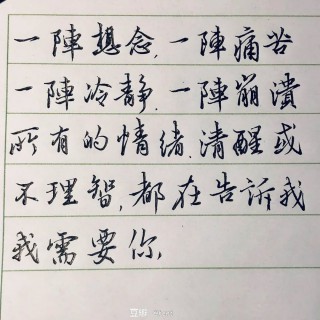 一陣想念,一陣痛苦
一陣冷静,一陣崩潰
所有的情緒,清醒或
不理智,都在告訴我
我需要你,